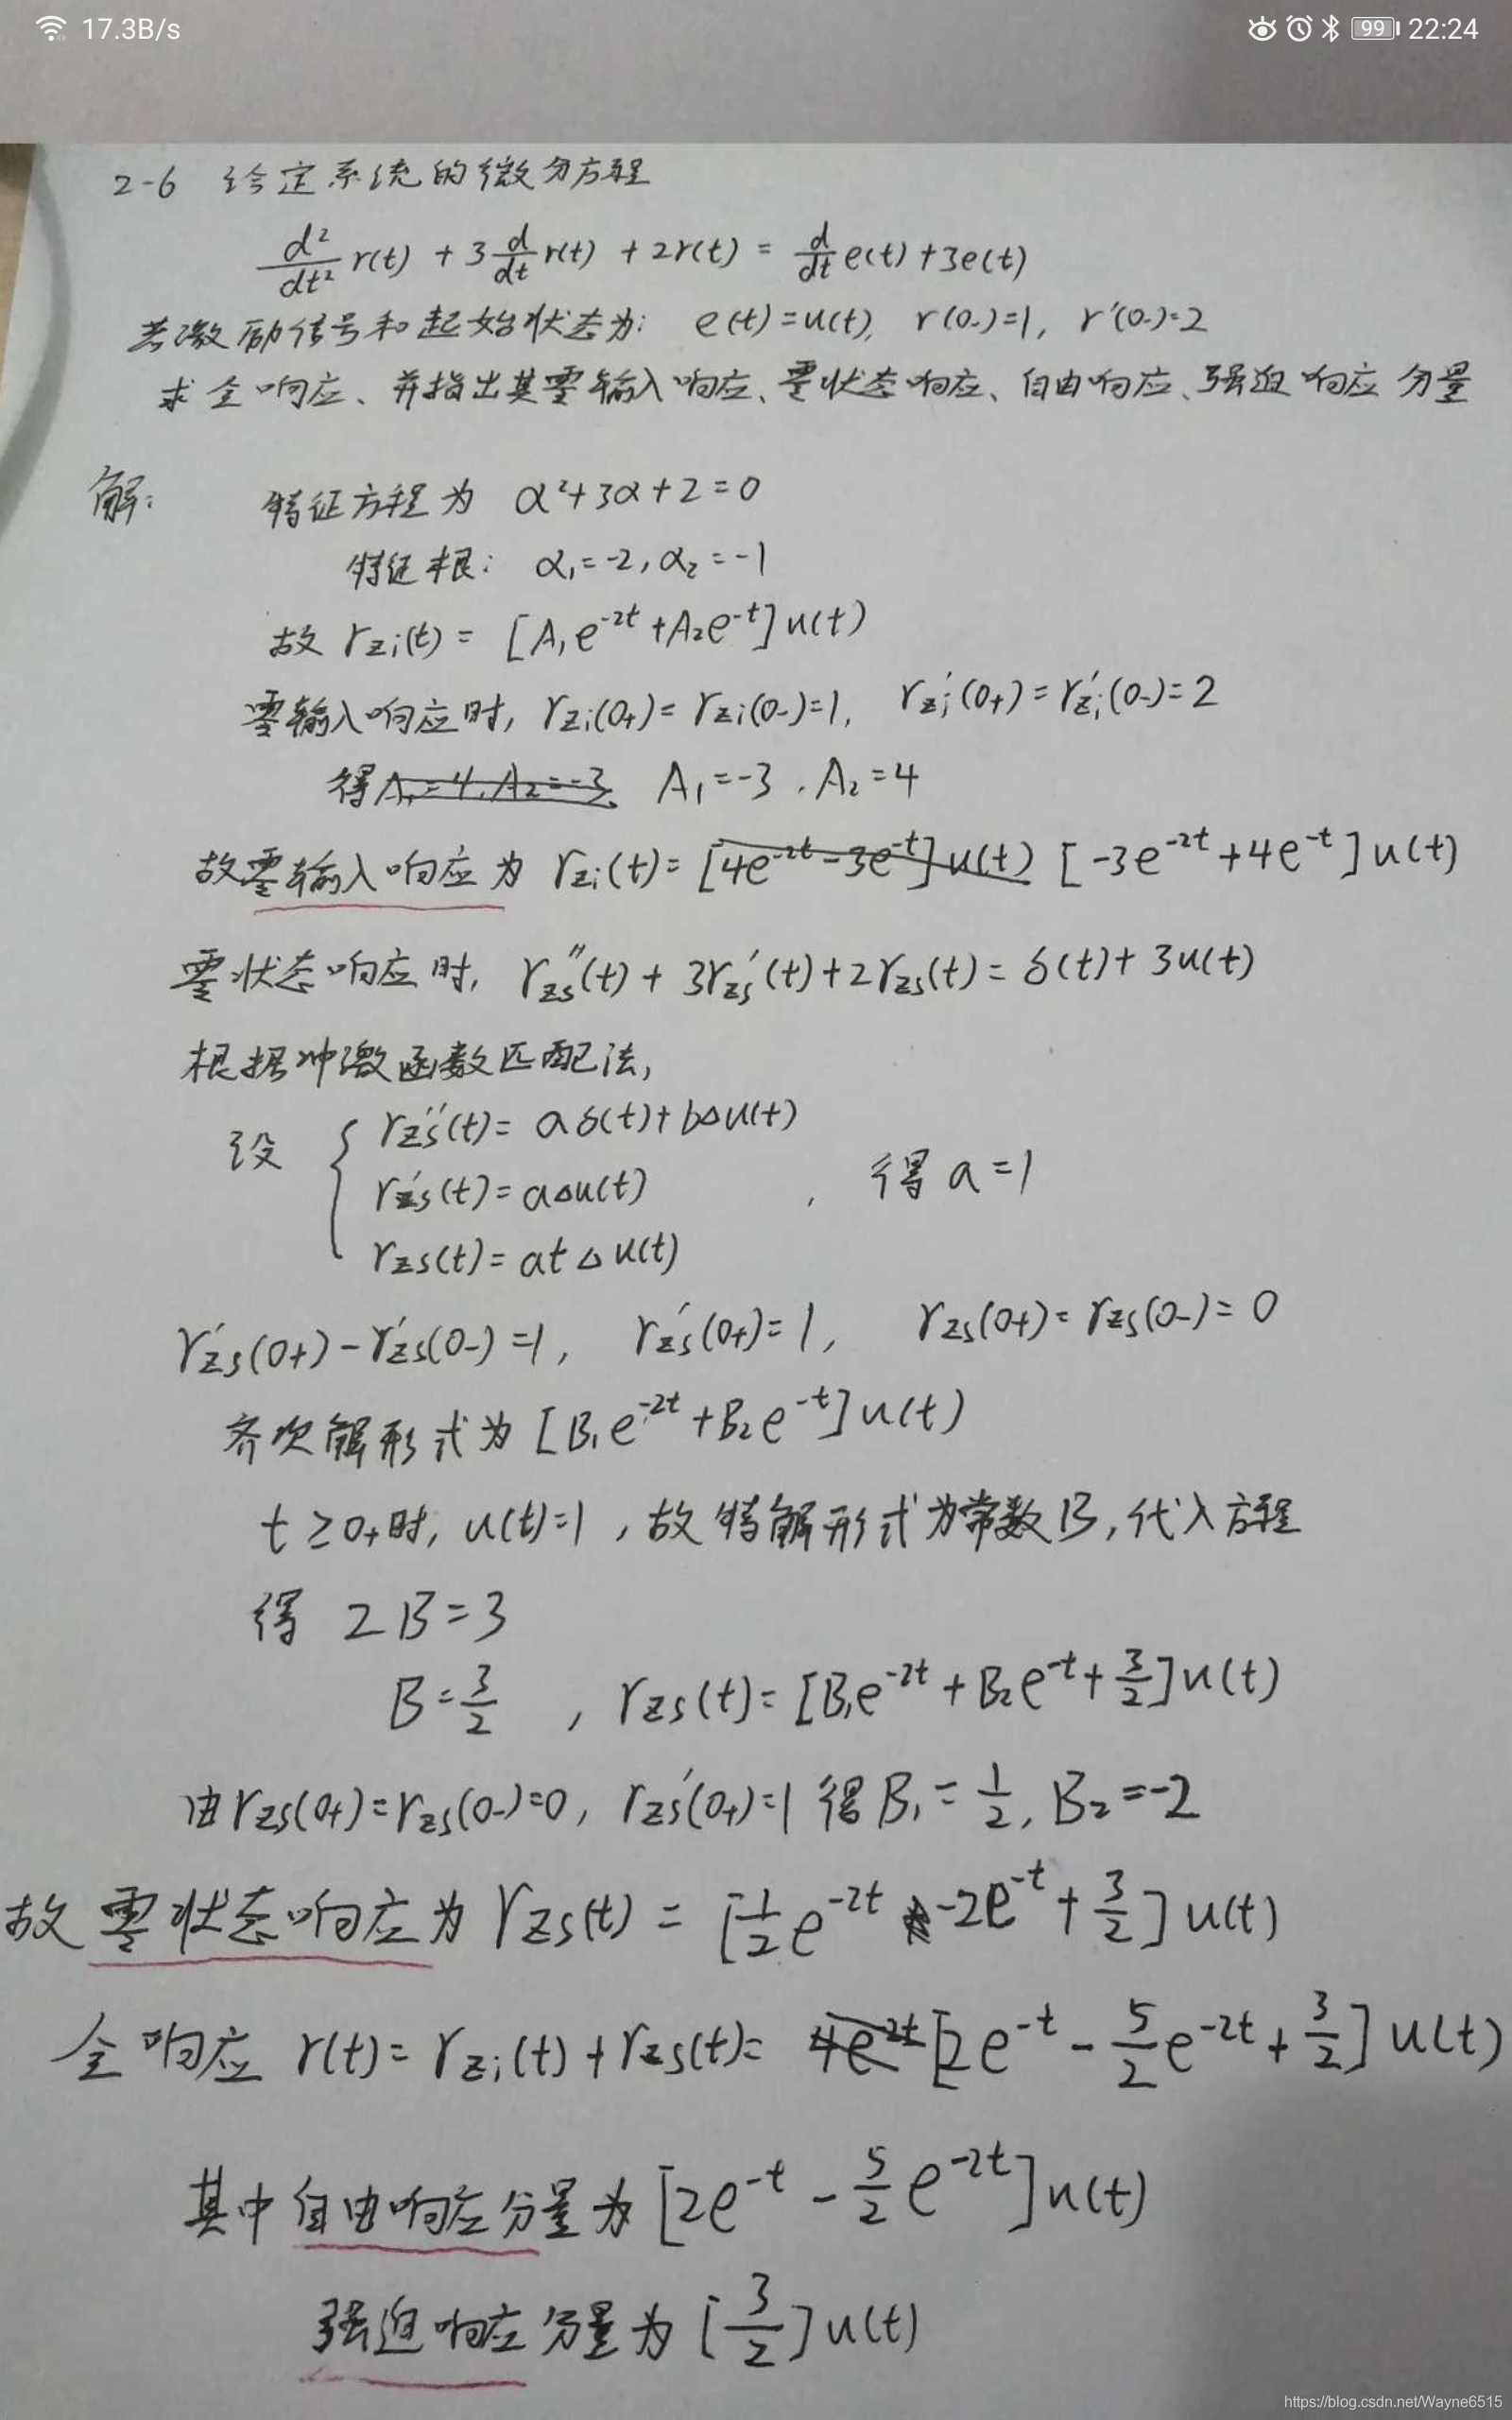 17.3B/s 99 22:24
2-6 给定系统的微分方程
d²/dt² r(t) + 3 d/dt r(t) + 2r(t) = d/dt e(t) + 3e(t)
若激励信号和起始状态为: e(t)=u(t), r(0-)=1, r'(0-)=2
求全响应、并指出其零输入响应、零状态响应、自由响应、强迫响应分量
解: 特征方程为 α²+3α+2=0
特征根: α₁=-2, α₂=-1
故 rzi(t) = [A₁e^{-2t}+A₂e^{-t}]u(t)
零输入响应时, rzi(0+)=rzi(0-)=1, rzi'(0+)=rzi'(0-)=2
得 A₁=4, A₂=-3 A₁=-3, A₂=4
故零输入响应为 rzi(t)= [4e^{-2t}-3e^{-t}]u(t) [-3e^{-2t}+4e^{-t}]u(t)
零状态响应时, rzs''(t) + 3rzs'(t) + 2rzs(t) = δ(t) + 3u(t)
根据冲激函数匹配法,
设 { rzs''(t)= aδ(t)+bΔu(t)
rzs'(t)= aΔu(t) , 得 a=1
rzs(t)= atΔu(t)
rzs'(0+)-rzs'(0-)=1, rzs'(0+)=1, rzs(0+)=rzs(0-)=0
齐次解形式为 [B₁e^{-2t}+B₂e^{-t}]u(t)
t≥0+时, u(t)=1, 故特解形式为常数B, 代入方程
得 2B=3
B=3/2 , rzs(t)= [B₁e^{-2t}+B₂e^{-t}+3/2]u(t)
由rzs(0+)=rzs(0-)=0, rzs'(0+)=1 得 B₁=1/2, B₂=-2
故零状态响应为 rzs(t) = [1/2 e^{-2t} -2e^{-t} + 3/2]u(t)
全响应 r(t)= rzi(t)+rzs(t)= 4e^{-2t} [2e^{-t} - 5/2 e^{-2t} + 3/2]u(t)
其中自由响应分量为 [2e^{-t} - 5/2 e^{-2t}]u(t)
强迫响应分量为 [3/2]u(t)
https://blog.csdn.net/Wayne6515